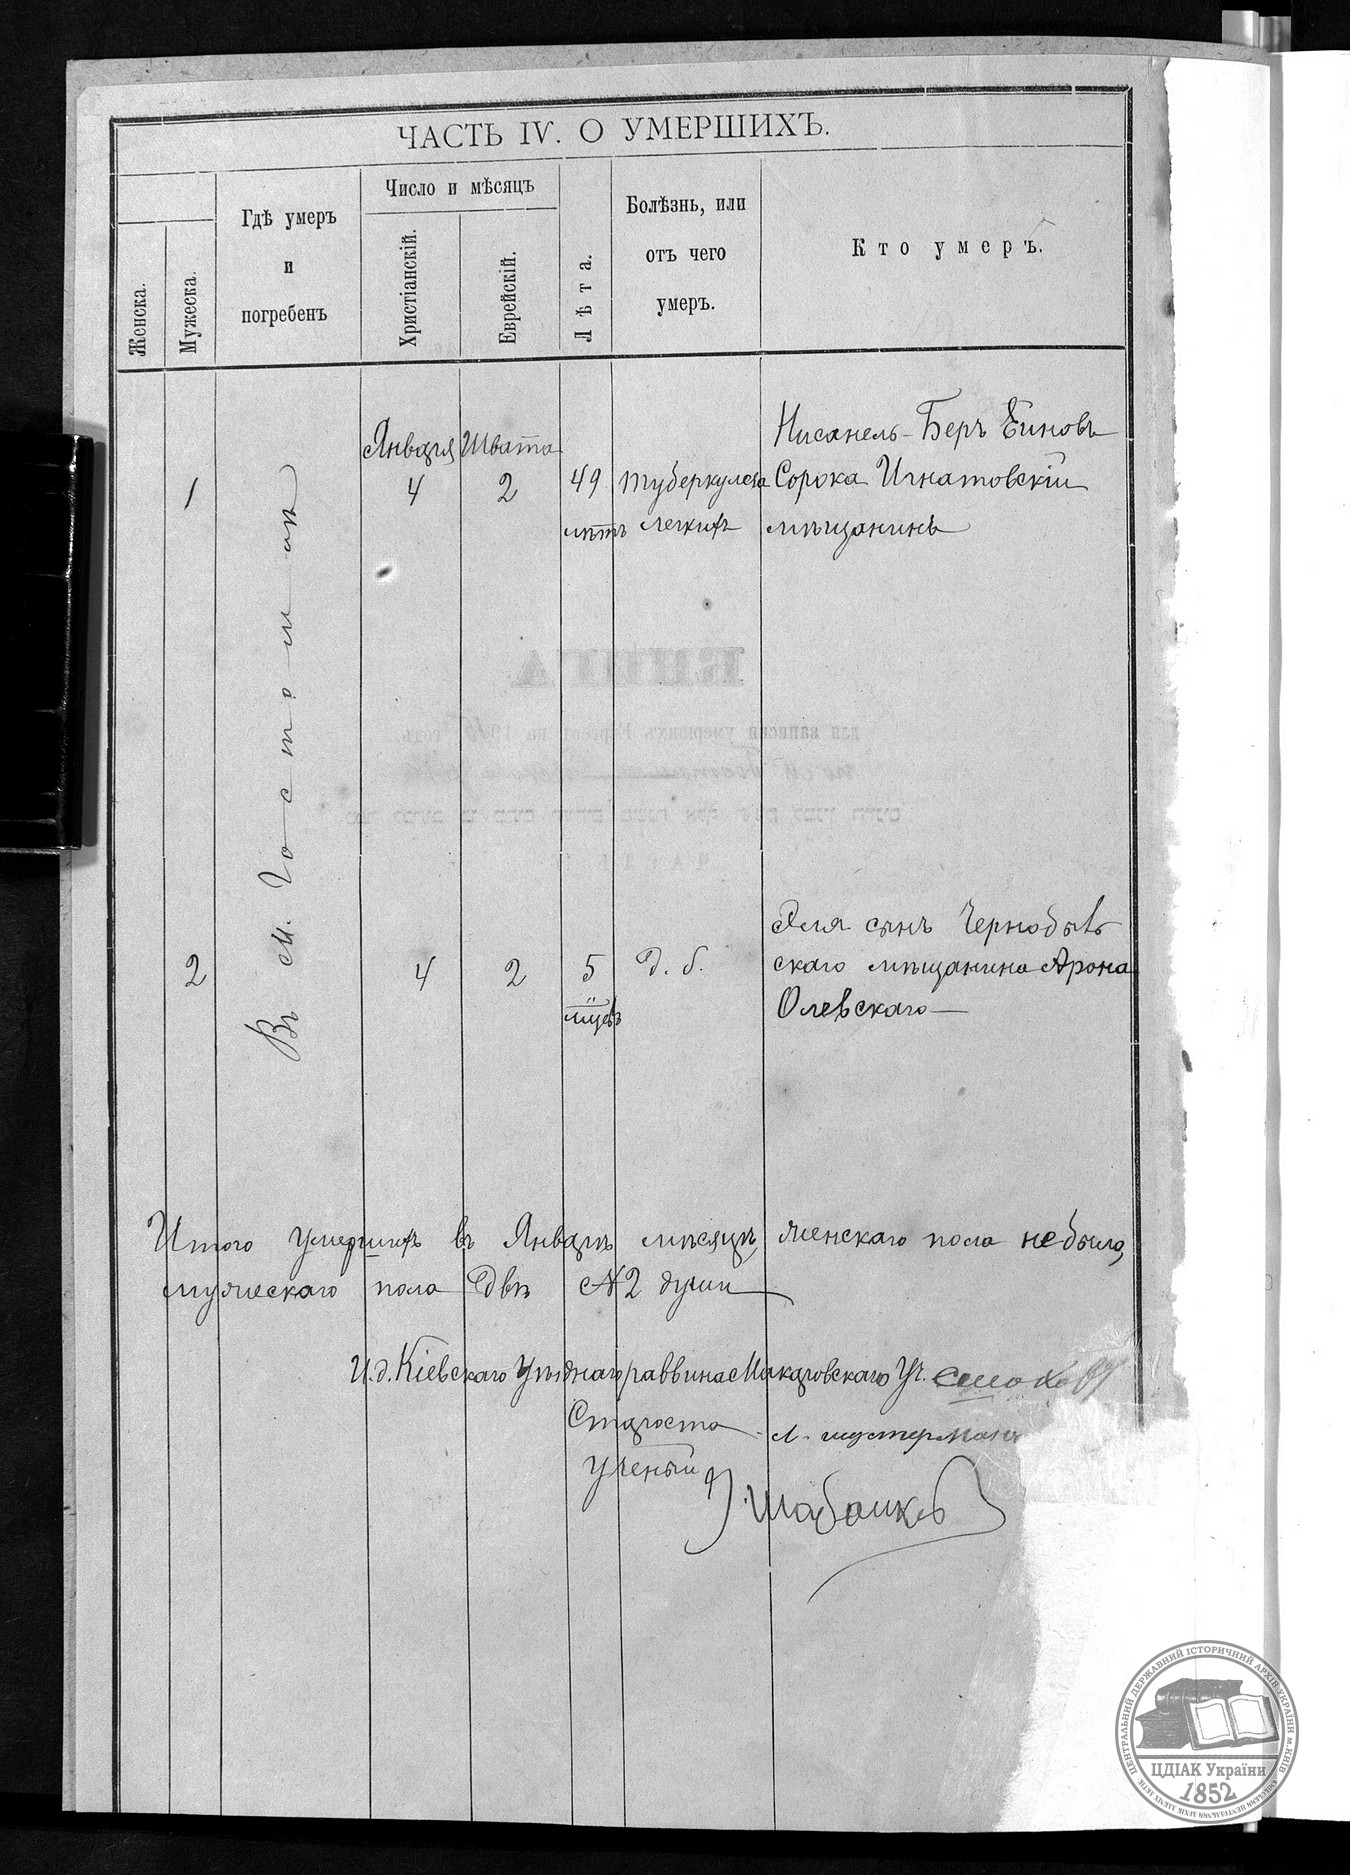 ЧАСТЬ IV. О УМЕРШИХЪ.
Женска.
Мужеска.
Гдѣ умеръ
и
погребенъ
Число и мѣсяцъ
Христіанскій.
Еврейскій.
Лѣта.
Болѣзнь, или
отъ чего
умеръ.
Кто умеръ.
Января Швата
1 4 2 49 туберкулеза
лѣтъ легкихъ
Нисанель-Беръ
Сорока Игнатовскій
мѣщанинъ
Въ м. Гостомлѣ
2 4 2 5 д. б.
мцевъ
Эля сынъ Чернобыв
скаго мѣщанина Арона
Олевскаго
Итого умершихъ въ Январѣ мѣсяцѣ, женскаго пола не было,
мужескаго пола Двѣ №2 души
И.д. Кіевскаго Уѣзднаго раввина Макаровскаго Уч.
Староста Л. Шустерман
Ученый
ЦЕНТРАЛЬНИЙ ДЕРЖАВНИЙ ІСТОРИЧНИЙ АРХІВ УКРАЇНИ м. КИЇВ
ЦДІАК України
1852